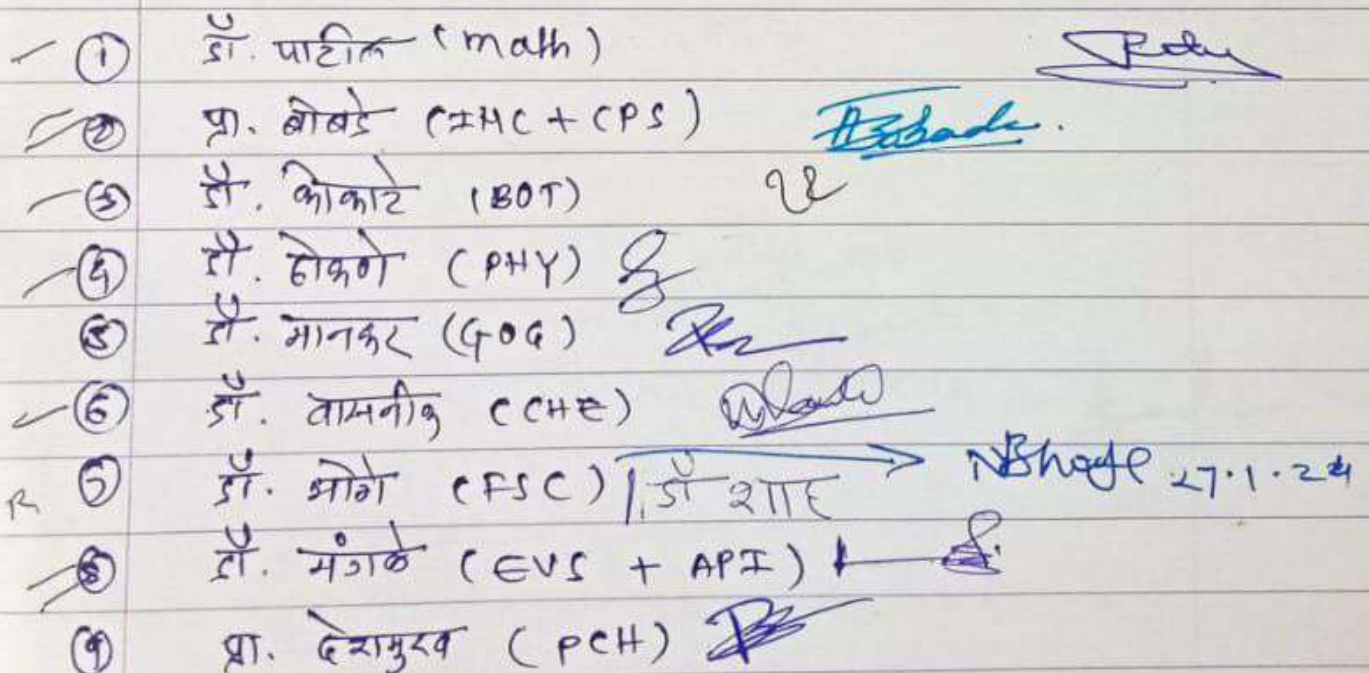 ① डॉ. पाटील (math)
② प्रा. बोबडे (IMC + CPS) Bobade.
③ डॉ. कोकाटे (BOT)
④ डॉ. ढोकणे (PHY)
⑤ डॉ. मानकर (GOG)
⑥ डॉ. वामनीक (CHE)
⑦ डॉ. भोगे (FSC) | डॉ शाह NBhoge 27.1.24
⑧ डॉ. मंगळे (EVS + API)
⑨ प्रा. देशमुख (PCH)